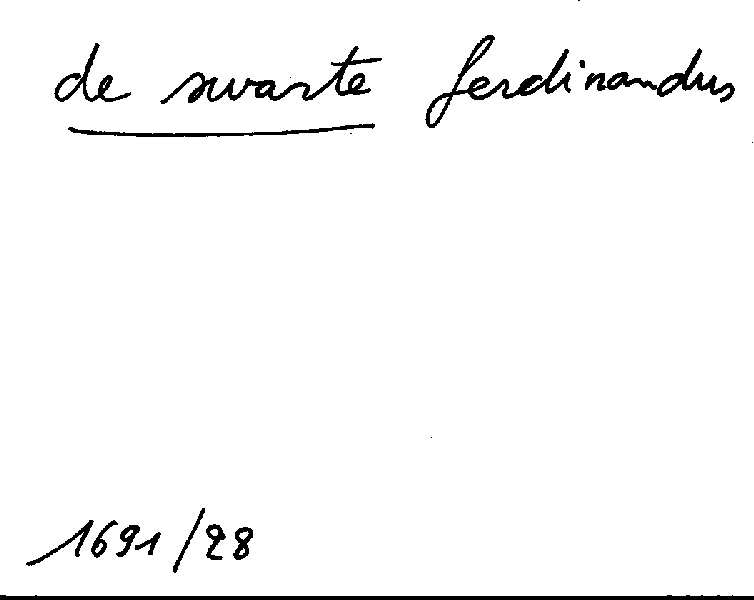 de swarte ferdinandus
1691/28